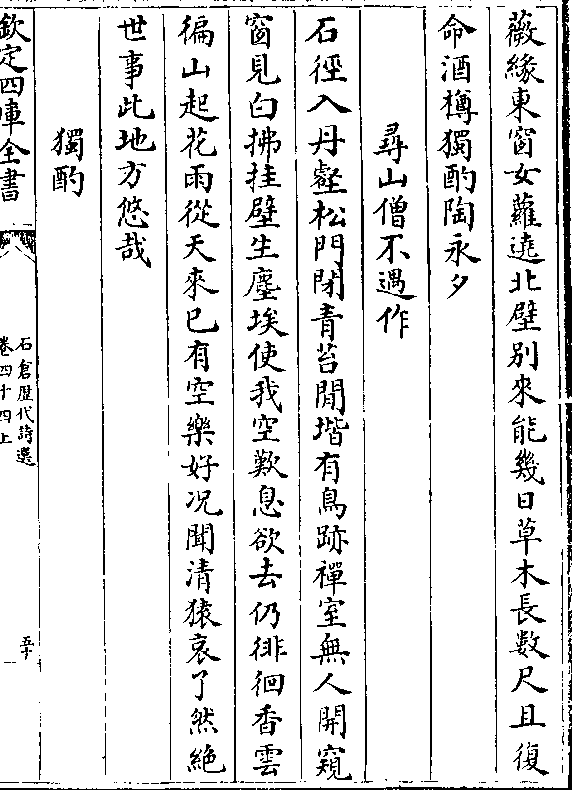 薇緣東窗女蘿遶北壁别來能幾日草木長數尺且復
命酒樽獨酌陶永夕
尋山僧不遇作
石徑入丹壑松門閉青苔閒堦有鳥跡禪室無人開窺
窗見白拂挂壁生塵埃使我空歎息欲去仍徘徊香雲
徧山起花雨從天來已有空樂好况聞清猿哀了然絶
世事此地方悠哉
獨酌
欽定四庫全書
石倉歴代詩選
卷四十四上
五十